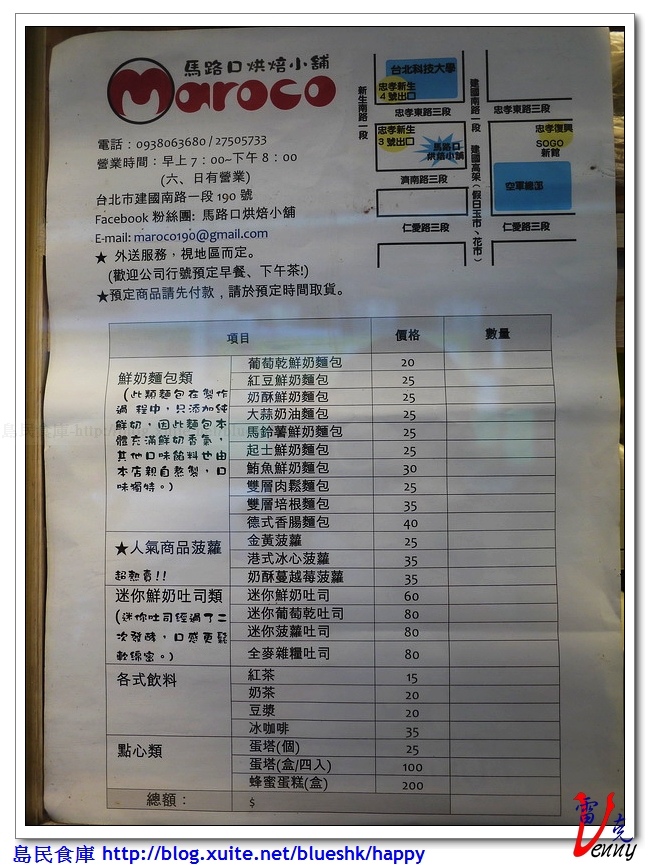 馬路口烘焙小舖
Maroco
電話：0938063680 / 27505733
營業時間：早上 7：00~下午 8：00
(六、日有營業)
台北市建國南路一段 190 號
Facebook 粉絲團: 馬路口烘焙小舖
E-mail: maroco190@gmail.com
★ 外送服務，視地區而定。
(歡迎公司行號預定早餐、下午茶!)
★預定商品請先付款，請於預定時間取貨。
新生南路一段
台北科技大學
忠孝新生
4 號出口
忠孝東路三段
忠孝新生
3 號出口
馬路口
烘焙小舖
濟南路三段
仁愛路三段
建國南路一段 建國高架(假日玉市、花市)
忠孝東路三段
忠孝復興
SOGO
新館
空軍總部
仁愛路三段
項目 價格 數量
鮮奶麵包類
(此類麵包在製作
過 程中，只添加純
鮮奶，因此麵包本
體充滿鮮奶香氣，
其他口味餡料也由
本店親自熬製，口
味獨特。)
葡萄乾鮮奶麵包 20
紅豆鮮奶麵包 25
奶酥鮮奶麵包 25
大蒜奶油麵包 25
馬鈴薯鮮奶麵包 25
起士鮮奶麵包 25
鮪魚鮮奶麵包 30
雙層肉鬆麵包 25
雙層培根麵包 35
德式香腸麵包 40
★人氣商品菠蘿
超熱賣!!
金黃菠蘿 25
港式冰心菠蘿 35
奶酥蔓越莓菠蘿 35
迷你鮮奶吐司類
(迷你吐司經過了二
次發酵，口感更鬆
軟綿密。)
迷你鮮奶吐司 60
迷你葡萄乾吐司 80
迷你菠蘿吐司 80
全麥雜糧吐司 80
各式飲料
紅茶 15
奶茶 20
豆漿 20
冰咖啡 35
點心類
蛋塔(個) 25
蛋塔(盒/四入) 100
蜂蜜蛋糕(盒) 200
總額： $
雷克
Venny
島民食庫 http://blog.xuite.net/blueshk/happy